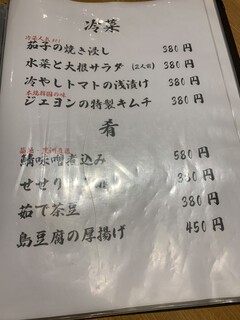 冷菜
茄子の焼き浸し 380円
水菜と大根サラダ(2人前) 380円
冷やしトマトの浅漬け 380円
本場韓国の味
ジェヨンの特製キムチ 380円
肴
鯖味噌煮込み 580円
せせり 380円
茹で茶豆 380円
島豆腐の厚揚げ 450円